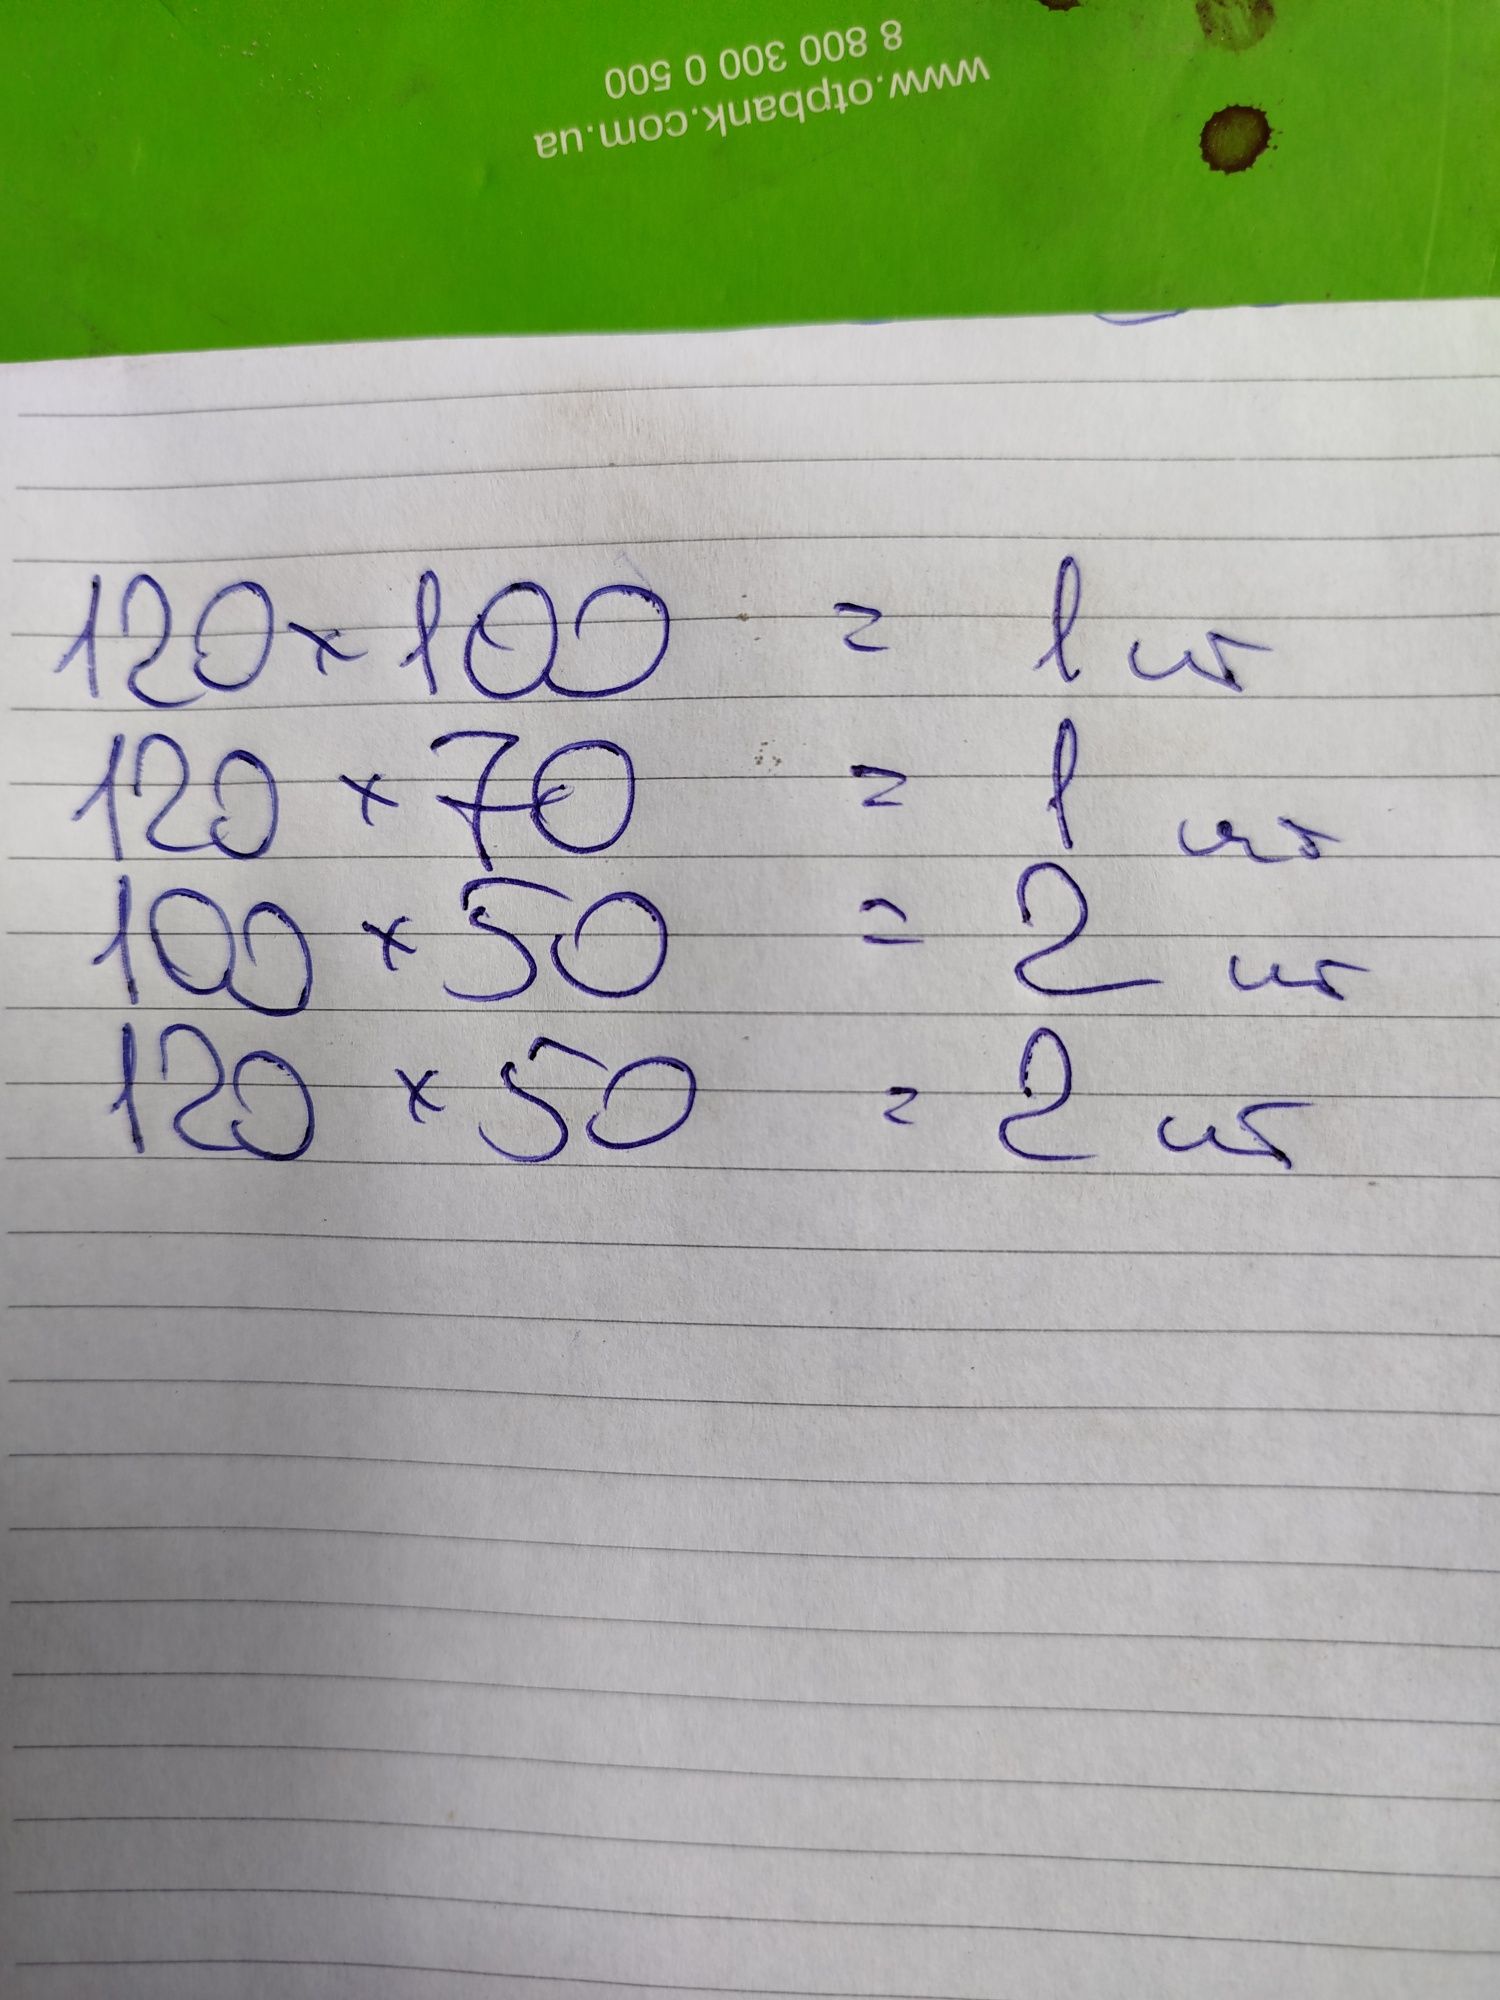 8 800 300 0 500
www.otpbank.com.ua
120 x 100 = 1 шт
120 x 70 = 1 шт
100 x 50 = 2 шт
120 x 50 = 2 шт